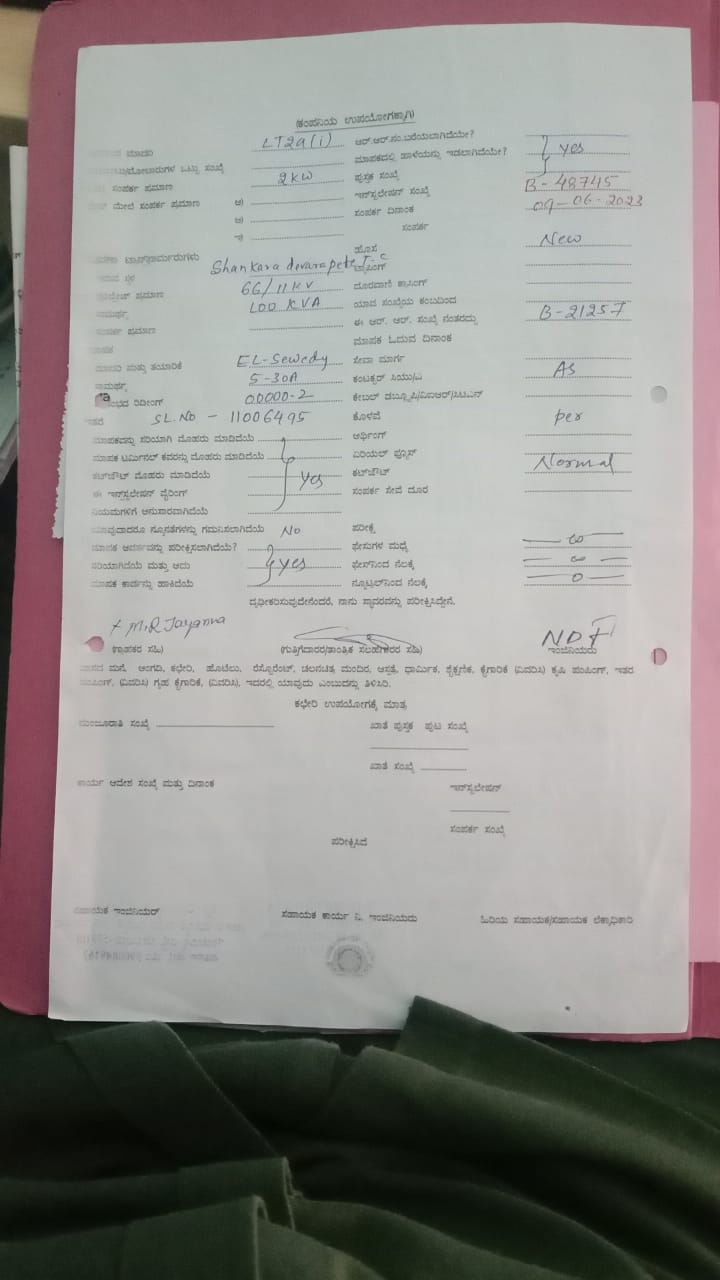 (ಕಂಪನಿಯ ಉಪಯೋಗಕ್ಕಾಗಿ)
ಮಾದರಿ LT2a(i) ಆರ್.ಆರ್.ಸಂ.ಬರೆಯಲಾಗಿದೆಯೇ?
ಒಟ್ಟು ಸಂಖ್ಯೆ ಮಾಪಕದಲ್ಲಿ ಹಾಳೆಯನ್ನು ಇಡಲಾಗಿದೆಯೇ? yes
ಸಂಪರ್ಕ ಪ್ರಮಾಣ 2KW ಪುಸ್ತಕ ಸಂಖ್ಯೆ
ಮೇಲೆ ಸಂಪರ್ಕ ಪ್ರಮಾಣ ಅ) ಇನ್‌ಸ್ಟಲೇಷನ್ ಸಂಖ್ಯೆ B-48745
ಆ) ಸಂಪರ್ಕ ದಿನಾಂಕ 09-06-2023
ಇ) ಸಂಪರ್ಕ
ಹೊಸ New
Shankara devarapete T.C ಟ್ಯಾಪಿಂಗ್
ಪ್ರಮಾಣ 66/11KV ದೂರವಾಣಿ ಕ್ರಾಸಿಂಗ್
ಸಾಮರ್ಥ್ಯ 100 KVA ಯಾವ ಸಂಖ್ಯೆಯ ಕಂಬದಿಂದ
ಸಂಪರ್ಕ ಪ್ರಮಾಣ ಈ ಆರ್. ಆರ್. ಸಂಖ್ಯೆ ನಂತರದ್ದು B-21257
ಮಾಪಕ ಓದುವ ದಿನಾಂಕ
ಮಾದರಿ ಮತ್ತು ತಯಾರಿಕೆ EL-Sewedy ಸೇವಾ ಮಾರ್ಗ
ಸಾಮರ್ಥ್ಯ 5-30A ಕಂಡಕ್ಟರ್ As
ರೀಡಿಂಗ್ 00000-2 ಕೇಬಲ್
ಇತರೆ SL.NO - 11006495 ಕೊಳವೆ per
ಮಾಪಕವನ್ನು ಸರಿಯಾಗಿ ಮೊಹರು ಮಾಡಿದೆಯೆ ಅರ್ಥಿಂಗ್
ಮಾಪಕ ಟರ್ಮಿನಲ್ ಕವರನ್ನು ಮೊಹರು ಮಾಡಿದೆಯೆ ಏರಿಯಲ್ ಫ್ಯೂಸ್
ಕಟ್‌ಔಟ್ ಮೊಹರು ಮಾಡಿದೆಯೆ yes ಕಟ್‌ಔಟ್ Normal
ಈ ಇನ್‌ಸ್ಟಲೇಷನ್ ವೈರಿಂಗ್ ಸಂಪರ್ಕ ಸೇವೆ ದೂರ
ನಿಯಮಗಳಿಗೆ ಅನುಸಾರವಾಗಿದೆಯೆ
ಯಾವುದಾದರೂ ನ್ಯೂನತೆಗಳನ್ನು ಗಮನಿಸಲಾಗಿದೆಯೆ No ಪರೀಕ್ಷೆ
ಮಾಪಕ ಆವರ್ತವನ್ನು ಪರೀಕ್ಷಿಸಲಾಗಿದೆಯೆ? ಫೇಸುಗಳ ಮಧ್ಯೆ ∞
ಸರಿಯಾಗಿದೆಯೆ ಮತ್ತು ಅದು yes ಫೇಸ್‌ನಿಂದ ನೆಲಕ್ಕೆ ∞
ಮಾಪಕ ಕಾರ್ಡನ್ನು ಹಾಕಿದೆಯೆ ನ್ಯೂಟ್ರಲ್‌ನಿಂದ ನೆಲಕ್ಕೆ 0
ದೃಢೀಕರಿಸುವುದೇನೆಂದರೆ, ನಾನು ಸ್ಥಾವರವನ್ನು ಪರೀಕ್ಷಿಸಿದ್ದೇನೆ.
x M.R Jayanna
(ಗ್ರಾಹಕರ ಸಹಿ) (ಗುತ್ತಿಗೆದಾರರ/ತಾಂತ್ರಿಕ ಸಲಹೆಗಾರರ ಸಹಿ) ಇಂಜಿನಿಯರು
ವಾಸದ ಮನೆ, ಅಂಗಡಿ, ಕಛೇರಿ, ಹೊಟೆಲು, ರೆಸ್ಟೋರೆಂಟ್, ಚಲನಚಿತ್ರ ಮಂದಿರ, ಆಸ್ಪತ್ರೆ, ಧಾರ್ಮಿಕ, ಶೈಕ್ಷಣಿಕ, ಕೈಗಾರಿಕೆ (ವಿವರಿಸಿ) ಕೃಷಿ ಪಂಪಿಂಗ್, ಇತರ
ಪಂಪಿಂಗ್, (ವಿವರಿಸಿ) ಗೃಹ ಕೈಗಾರಿಕೆ, (ವಿವರಿಸಿ), ಇದರಲ್ಲಿ ಯಾವುದು ಎಂಬುದನ್ನು ತಿಳಿಸಿರಿ.
ಕಛೇರಿ ಉಪಯೋಗಕ್ಕೆ ಮಾತ್ರ
ಮಂಜೂರಾತಿ ಸಂಖ್ಯೆ ಖಾತೆ ಪುಸ್ತಕ ಪುಟ ಸಂಖ್ಯೆ
ಖಾತೆ ಸಂಖ್ಯೆ
ಕಾರ್ಯ ಆದೇಶ ಸಂಖ್ಯೆ ಮತ್ತು ದಿನಾಂಕ ಇನ್‌ಸ್ಟಲೇಷನ್
ಸಂಪರ್ಕ ಸಂಖ್ಯೆ
ಪರೀಕ್ಷಿಸಿದೆ
ಸಹಾಯಕ ಇಂಜಿನಿಯರ್ ಸಹಾಯಕ ಕಾರ್ಯ ನಿ. ಇಂಜಿನಿಯರು ಹಿರಿಯ ಸಹಾಯಕ/ಸಹಾಯಕ ಲೆಕ್ಕಾಧಿಕಾರಿ